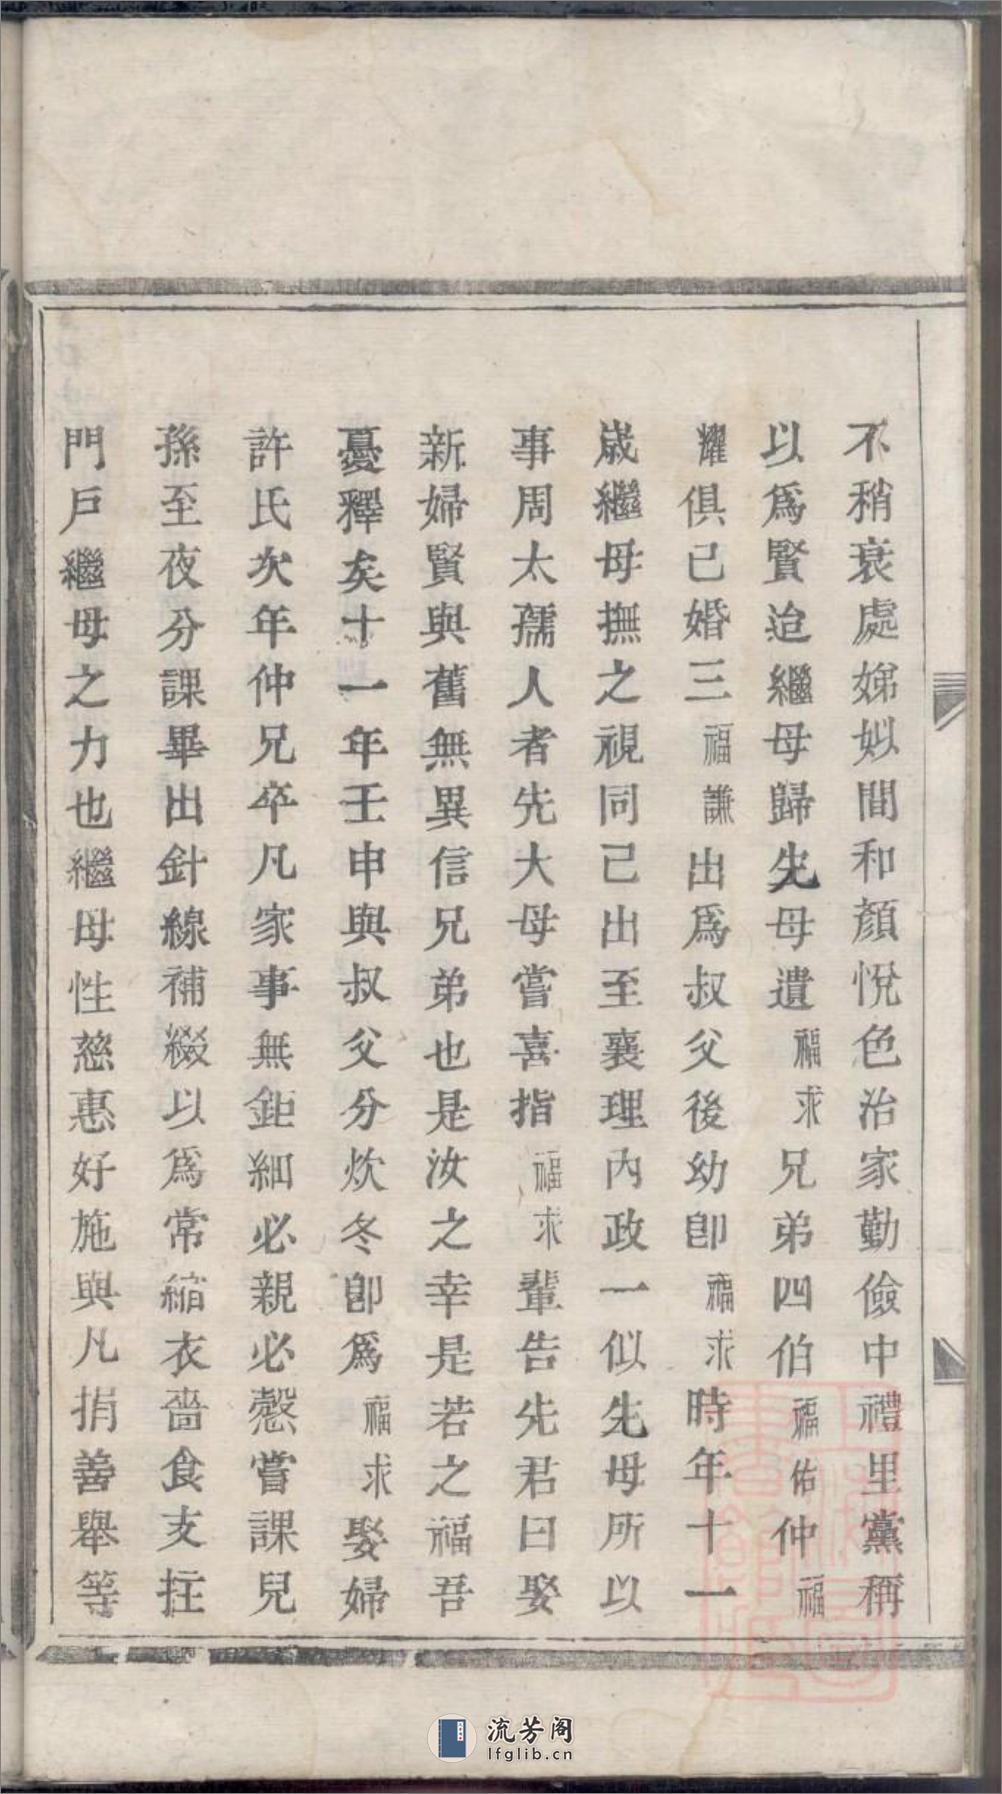 不稍衰處娣姒間和顏悅色治家勤儉中禮里黨稱
以爲賢迨繼母歸先母遺福求兄弟四伯福佑仲福
耀俱已婚三福謙出爲叔父後幼卽福求時年十一
歲繼母撫之視同己出至襄理內政一似先母所以
事周太孺人者先大母嘗喜指福求輩告先君曰娶
新婦賢與舊無異信兄弟也是汝之幸是若之福吾
憂釋矣十一年壬申與叔父分炊冬卽爲福求娶婦
許氏次年仲兄卒凡家事無鉅細必親必慤嘗課兒
孫至夜分課畢出針線補綴以爲常縮衣嗇食支拄
門戶繼母之力也繼母性慈惠好施與凡捐善舉等
流芳阁
lfglib.cn